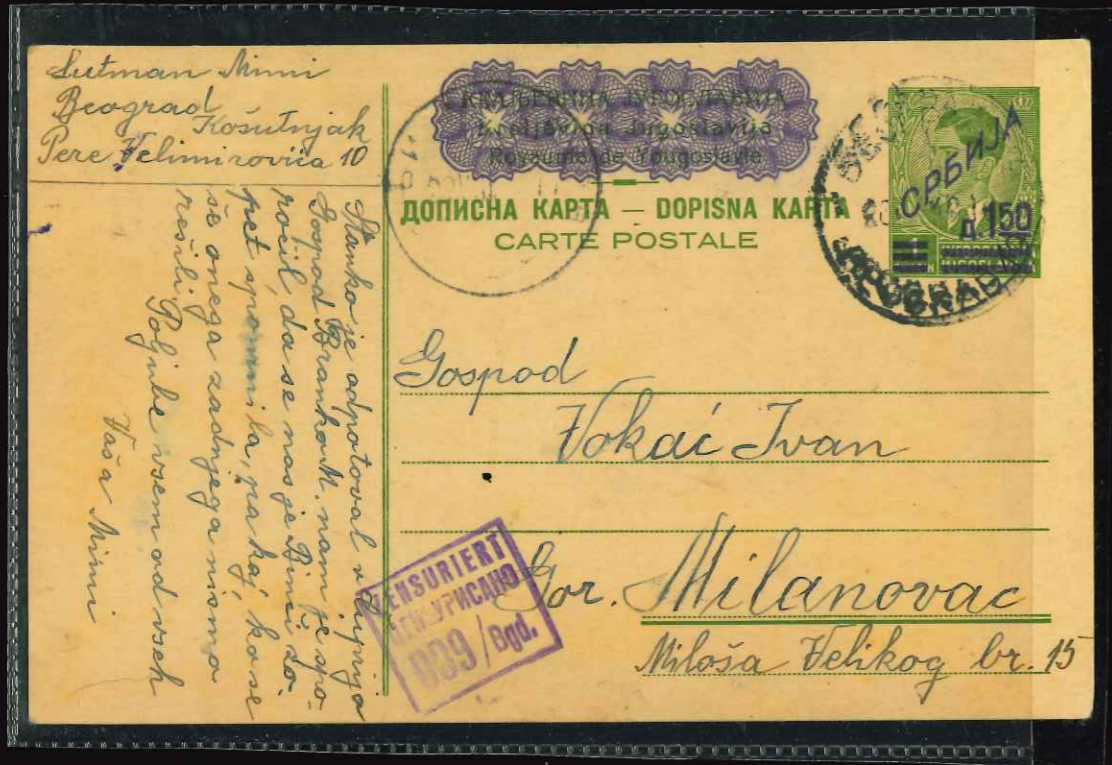 Sutman Mimi
Beograd
Košutnjak
Pere Velimirovića 10
Stanko je odpotoval v Ćuprija
Gospod Branko M. nam je spo-
ročil, da se nas je Bimči zo-
pet spomnila, pa kaj, ko se
še onega zadnjega nismo
rešili. Poljube vsem od vseh
Vaša Mimi
КРАЉЕВИНА ЈУГОСЛАВИЈА
Kraljevina Jugoslavija
Royaume de Yougoslavie
ДОПИСНА КАРТА — DOPISNA KARTA
CARTE POSTALE
СРБИЈА
Д 1.50
JUGOSLAVIJA
BEOGRAD
Gospod
Vokać Ivan
Gor. Milanovac
Miloša Velikog br. 15
ZENSURIERT
ЦЕНЗУРИСАНО
009/Bgd.